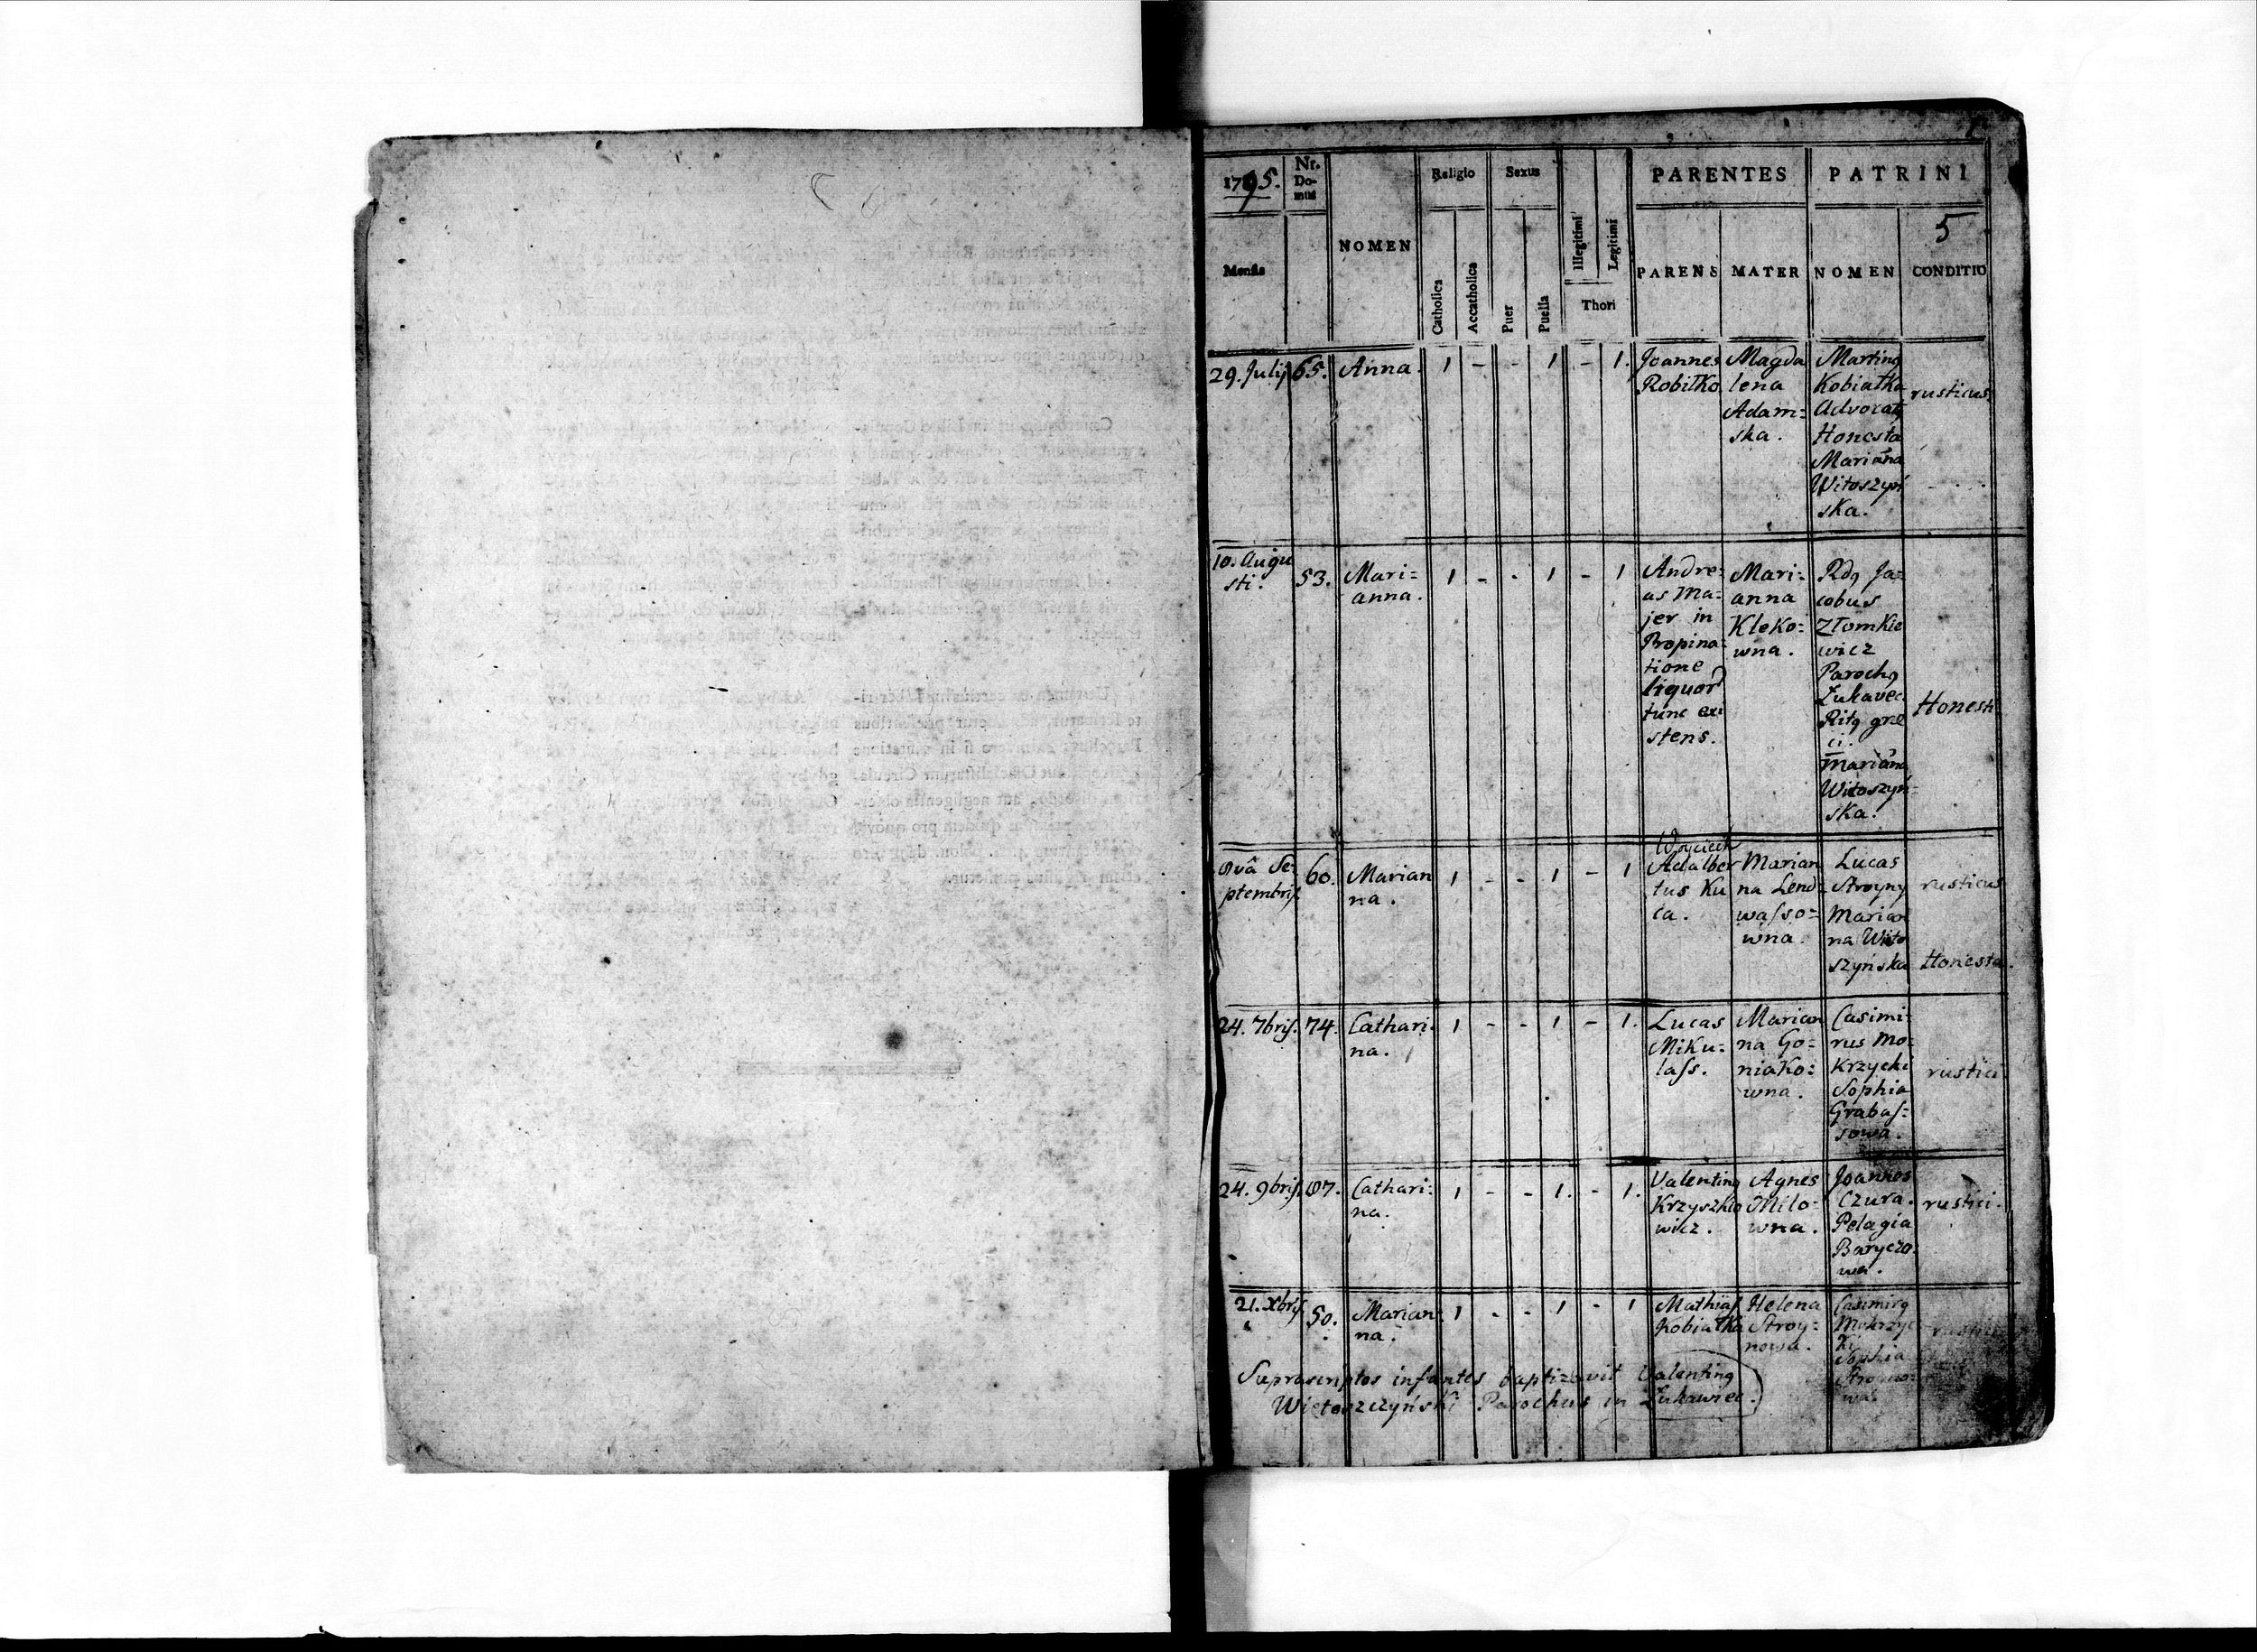 1795.
Nr. Do-mus
NOMEN
Religio
Sexus
Illegitimi
Legitimi
Thori
PARENTES
PATRINI
5
Mensis
Catholica
Accatholica
Puer
Puella
PARENS
MATER
NOMEN
CONDITIO
29. Julij
65.
Anna.
1 - - 1 - 1.
Joannes
Robitko
Magda
lena
Adam=
ska.
Martinq
Kobiatka
Advocatq
Honesta
Mariana
Witoszyń
ska.
rusticus
10. Augu
sti.
53.
Mari=
anna.
1 - - 1 - 1
Andre=
as Ma=
jer in
Propina=
tione
liquor
tunc exi
stens.
Mari=
anna
Kleko=
wna.
Rdq Ja=
cobus
Złomkie
wicz
Parochq
Łukavec
Ritq græ
ci.
Mariana
Witoszyń=
ska.
Honesti
8vâ Se=
ptembris.
60.
Marian
na.
1 - - 1 - 1
Woyciech
Adalber
tus Ku
ca.
Marian
na Lend=
wasso=
wna.
Lucas
Stroyny
Marian
na Wito
szyńska
rusticus
Honesta.
24. 7bris.
74.
Cathari=
na.
1 - - 1 - 1.
Lucas
Miku=
lass.
Marian
na Go=
niako=
wna.
Casimi=
rus Mo=
krzycki
Sophia
Grabas=
sowa.
rustici
24. 9bris.
87.
Cathari=
na.
1 - - 1. - 1.
Valentinq
Krzyszko
wicz.
Agnes
Milo=
wna.
Joannes
Czura.
Pelagia
Baryczo=
wa.
rustici.
21. Xbris
50.
Marian
na.
1 - - 1 - 1
Mathias
Kobiatka
Helena
Stroy=
nowa.
Casimirq
Mokrzyc=
ki
Sophia
wa.
Suprascriptos infantes baptizavit Valentinq
Wietoszczyński Parochus in Łukawiec.